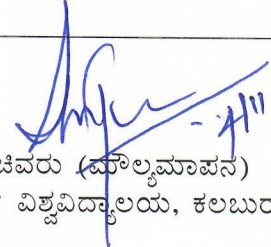 ಚಿವರು (ಮೌಲ್ಯಮಾಪನ)
ವಿಶ್ವವಿದ್ಯಾಲಯ, ಕಲಬುರ